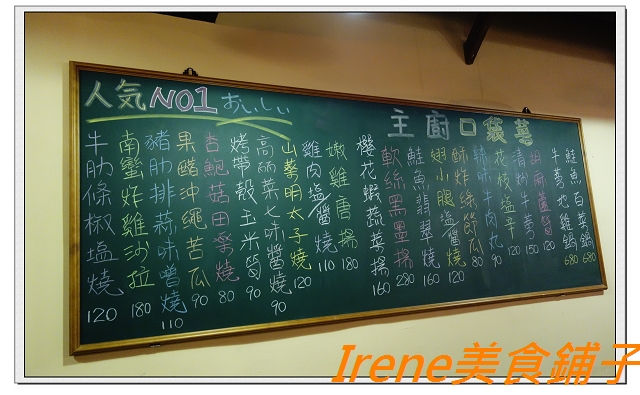 人気NO1 おいしい
主廚口袋菜
牛肋條椒塩燒 120
南蠻炸雞沙拉 180
豬肋排蒜味噌燒 110
果醋沖繩苦瓜 90
杏鮑菇田樂燒 80
烤帶殼玉米筍 90
高麗菜七味醬燒 90
山藥明太子燒 120
雞肉塩醬燒 110
嫩雞唐揚 180
櫻花蝦蔬菜揚 160
軟絲黑墨揚 280
鮭魚翡翠燒 160
翅小腿塩醬燒 120
酥炸絲節瓜 80
辣味牛肉丸 90
花枝塩辛 120
清粉牛蒡 150
120
牛蒡地雞鍋 680
鮭魚白菜鍋 680
Irene美食鋪子